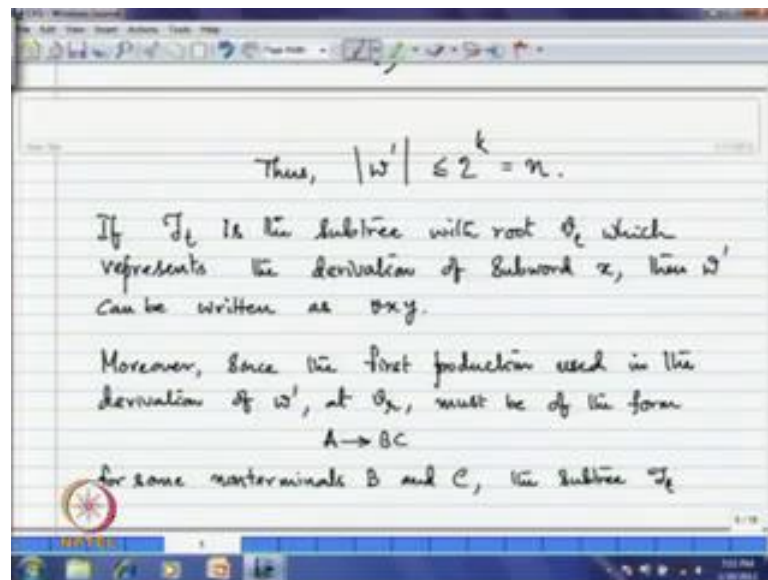 Thus, |w'| ≤ 2^k = n.
If T_t is the subtree with root v_t which
represents the derivation of subword x, then w'
can be written as vxy.
Moreover, since the first production used in the
derivation of w', at v_r, must be of the form
A → BC
for some nonterminals B and C, the subtree T_t
NPTEL